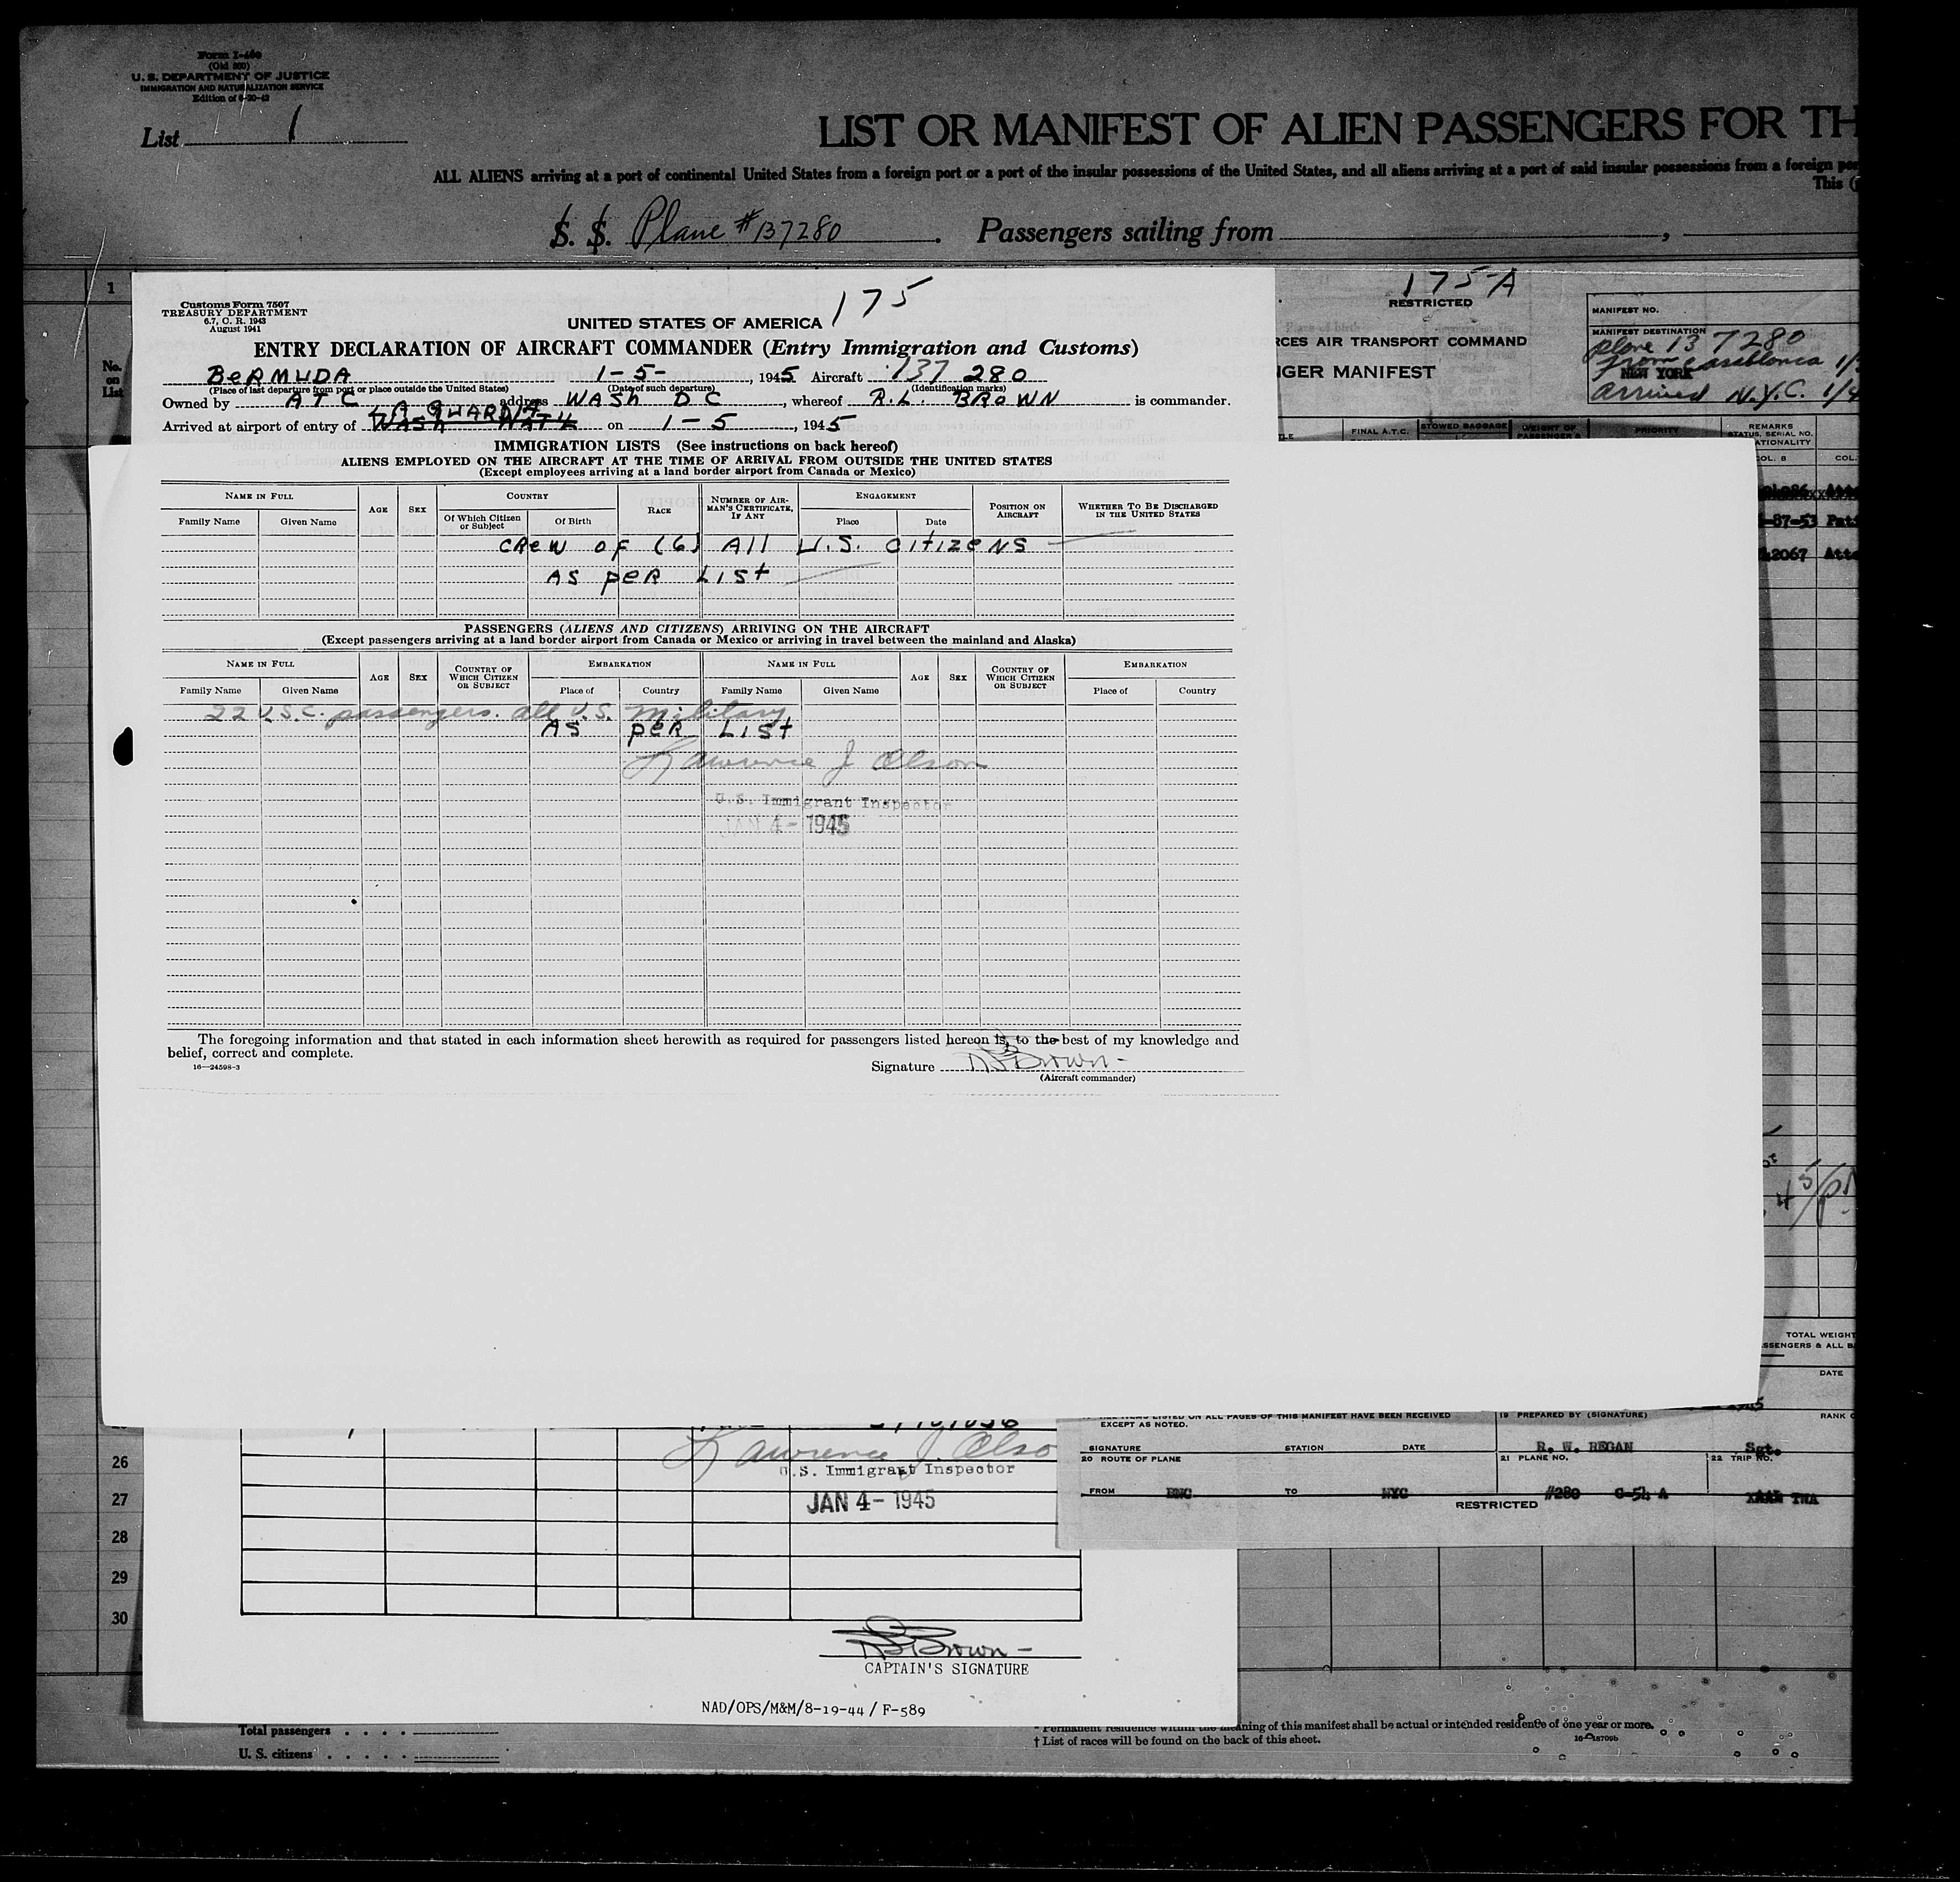 Form I-466
(Old 500)
U. S. DEPARTMENT OF JUSTICE
IMMIGRATION AND NATURALIZATION SERVICE
Edition of 6-20-42
List 1
LIST OR MANIFEST OF ALIEN PASSENGERS FOR TH
ALL ALIENS arriving at a port of continental United States from a foreign port or a port of the insular possessions of the United States, and all aliens arriving at a port of said insular possessions from a foreign por
This (
S. S. Plane #137280 . Passengers sailing from ,
1
No.
on
List
Customs Form 7507
TREASURY DEPARTMENT
6.7, C. R. 1943
August 1941
175
UNITED STATES OF AMERICA
ENTRY DECLARATION OF AIRCRAFT COMMANDER (Entry Immigration and Customs)
BERMUDA 1-5- , 1945 Aircraft 137 280
(Place of last departure from port or place outside the United States) (Date of such departure) (Identification marks)
Owned by ATC address WASH DC , whereof R.L. BROWN is commander.
LA GUARDIA
Arrived at airport of entry of WASH NATL on 1-5 , 1945
IMMIGRATION LISTS (See instructions on back hereof)
ALIENS EMPLOYED ON THE AIRCRAFT AT THE TIME OF ARRIVAL FROM OUTSIDE THE UNITED STATES
(Except employees arriving at a land border airport from Canada or Mexico)
NAME IN FULL AGE SEX COUNTRY RACE NUMBER OF AIRMAN'S CERTIFICATE, IF ANY ENGAGEMENT POSITION ON AIRCRAFT WHETHER TO BE DISCHARGED IN THE UNITED STATES
Family Name Given Name Of Which Citizen or Subject Of Birth Place Date
CREW OF (6) All U.S. CitizeNS
AS PER LIST
PASSENGERS (ALIENS AND CITIZENS) ARRIVING ON THE AIRCRAFT
(Except passengers arriving at a land border airport from Canada or Mexico or arriving in travel between the mainland and Alaska)
NAME IN FULL AGE SEX COUNTRY OF WHICH CITIZEN OR SUBJECT EMBARKATION NAME IN FULL AGE SEX COUNTRY OF WHICH CITIZEN OR SUBJECT EMBARKATION
Family Name Given Name Place of Country Family Name Given Name Place of Country
22 U.S.C. passengers. all U.S. Military
AS PER LIST
Lawrence J Olson
U.S. Immigrant Inspector
JAN 4- 1945
The foregoing information and that stated in each information sheet herewith as required for passengers listed hereon is, to the best of my knowledge and
belief, correct and complete.
16—24598-3
Signature RLBrown
(Aircraft commander)
175-A
RESTRICTED
RCES AIR TRANSPORT COMMAND
NGER MANIFEST
MANIFEST NO.
MANIFEST DESTINATION
plane 137280
from Casablanca 1/
NEW YORK
arrived N.Y.C. 1/4
TLE FINAL A.T.C. STOWED BAGGAGE WEIGHT OF PASSENGER & PRIORITY REMARKS
STATUS, SERIAL NO.
NATIONALITY
COL. 8 COL.
-87-53
2067
TOTAL WEIGHT
SSENGERS & ALL B
DATE
RANK
ITEMS LISTED ON ALL PAGES OF THIS MANIFEST HAVE BEEN RECEIVED
EXCEPT AS NOTED.
19 PREPARED BY (SIGNATURE)
SIGNATURE STATION DATE R. W. REGAN Sgt.
20 ROUTE OF PLANE 21 PLANE NO. 22 TRIP NO.
FROM TO NYC #280 C-54 A TWA
RESTRICTED
Lawrence J. Olso
U.S. Immigrant Inspector
JAN 4- 1945
26
27
28
29
30
RLBrown
CAPTAIN'S SIGNATURE
NAD/OPS/M&M/8-19-44 / F-589
Total passengers . . . .
U. S. citizens . . . . .
* Permanent residence within the meaning of this manifest shall be actual or intended residence of one year or more.
† List of races will be found on the back of this sheet.
16—18709b